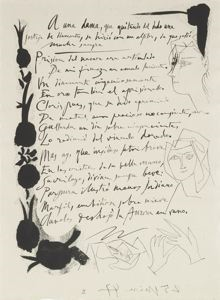 A una dama, que quitándose del dedo una
sortija de diamantes, se hirió con un alfiler, de que salió
mucha sangre
Prision del nacar era articulado
De mi firmeza un emulo luciente,
Un diamante ingeniosamente
En oro tambien el aprisionado.
Cloris pues, que su dedo apremiado
De metal, aun precioso no consiente,
Gallarda un dia sobre impaciente,
Lo redimio del vinculo dorado.
Mas ay, que insidioso laton breve
En los cristales de su bella mano,
Sacrilego, divina sangre bebe:
Purpura ilustró menos Indiano
Marfil, embidiosa sobre nieve
Claveles deshojó la Aurora en vano.